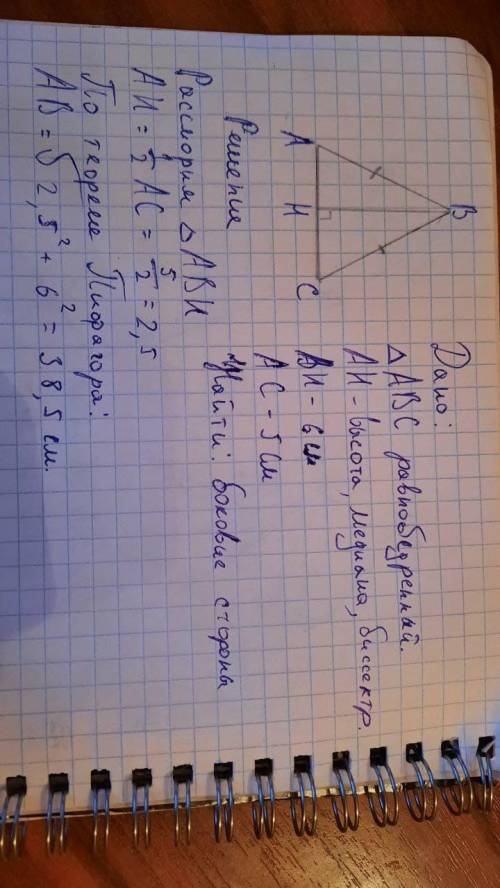 Дано:
△ ABC равнобедренный.
AH - высота, медиана, биссектр.
BH - 6 см
AC - 5 см
Найти: боковые стороны
B
A
H
C
Решение
Рассмотрим △ ABH
AH = 1/2 AC = 5/2 = 2,5
По теореме Пифагора:
AB = √2,5² + 6² = 38,5 см.